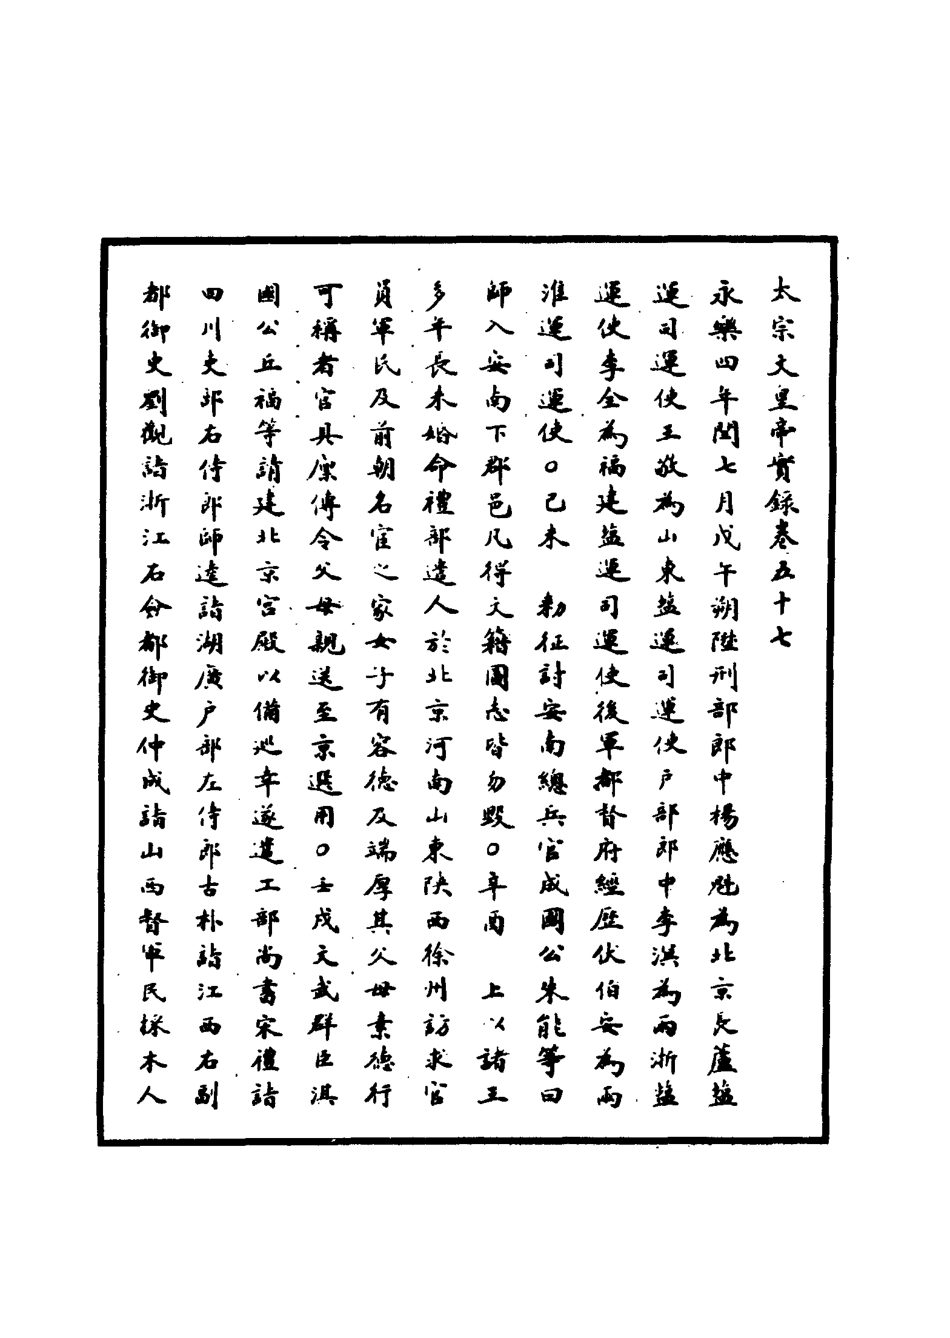 太宗文皇帝實錄卷五十七
永樂四年閏七月戊午朔陞刑部郎中楊應魁為北京長蘆塩
運司運使王敬為山東塩運司運使戶部郎中李淇為兩浙塩
運使李全為福建塩運司運使後軍都督府經歷伏伯安為兩
淮運司運使○己未　勑征討安南總兵官成國公朱能等曰
師入安南下郡邑凡得文籍圖志皆勿毀○辛酉　上以諸王
多年長未婚命禮部遣人於北京河南山東陝西徐州訪求官
員軍民及前朝名宦之家女子有容德及端厚其父母素德行
可稱者官具廩傳令父母親送至京選用○壬戌文武群臣淇
國公丘福等請建北京宮殿以備巡幸遂遣工部尚書宋禮詣
四川吏部右侍郎師逵詣湖廣戶部左侍郎古朴詣江西右副
都御史劉觀詣浙江右僉都御史仲成詣山西督軍民採木人